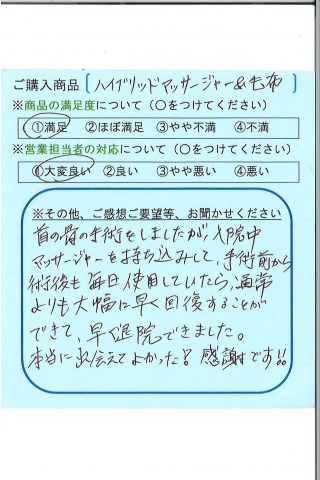 ご購入商品〔ハイブリッドマッサージャー&毛布
※商品の満足度について（○をつけてください）
①満足 ②ほぼ満足 ③やや不満 ④不満
※営業担当者の対応について（○をつけてください）
①大変良い ②良い ③やや悪い ④悪い
※その他、ご感想ご要望等、お聞かせください
首の骨の手術をしましたが、入院中
マッサージャーを持ち込みして、手術前から
術後も毎日使用していたら、通常
よりも大幅に早く回復することが
できて、早く退院できました。
本当に出会えてよかった!! 感謝です!!